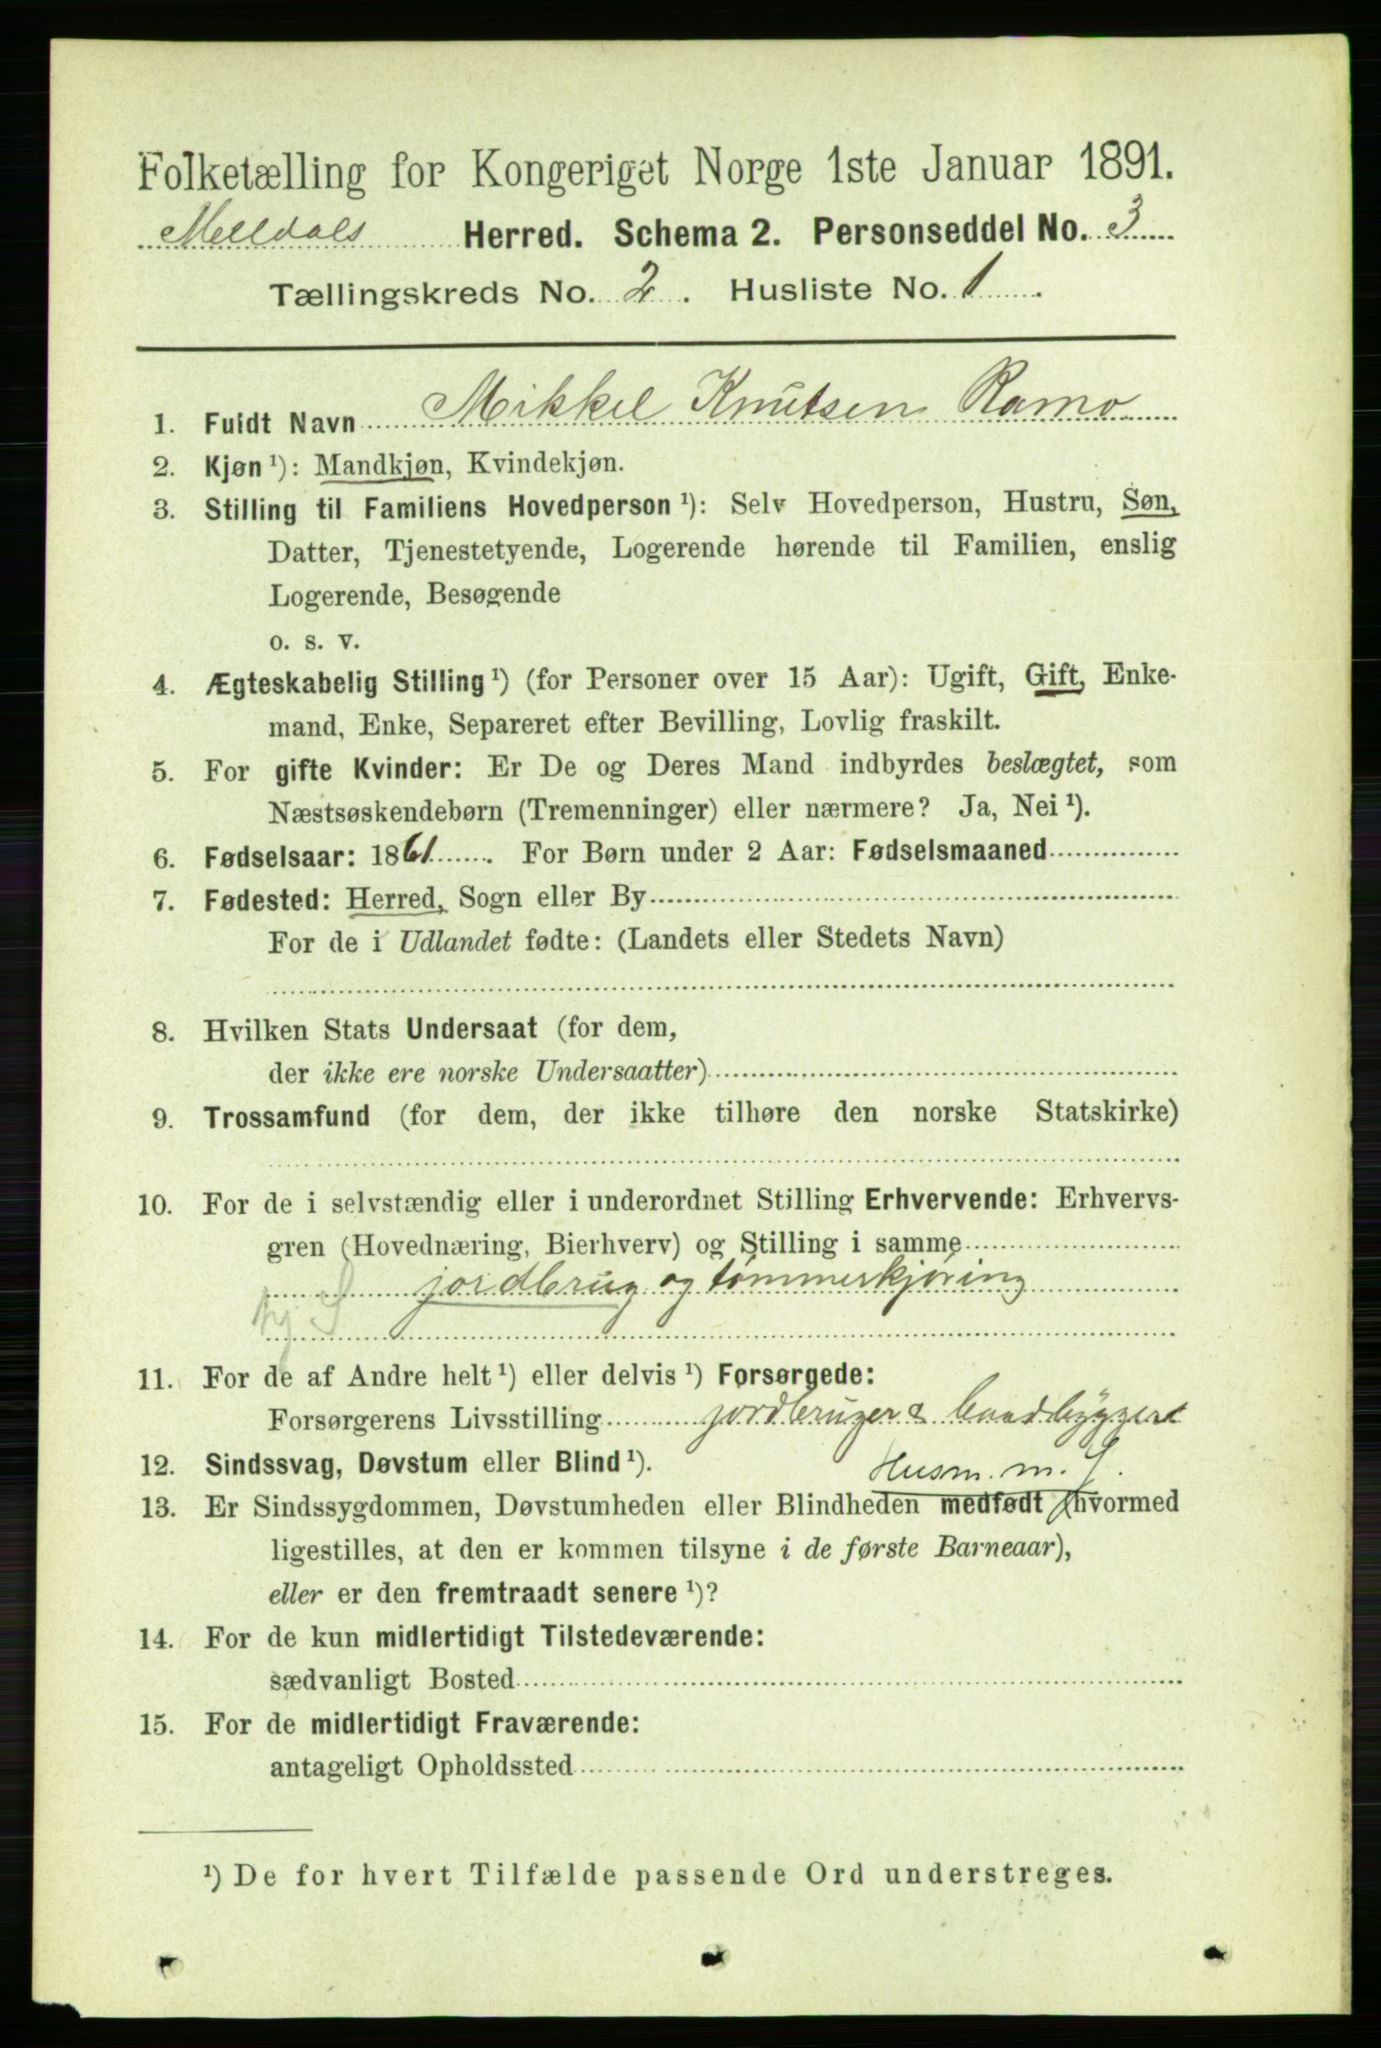 Folketælling for Kongeriget Norge 1ste Januar 1891.
Melldals Herred. Schema 2. Personseddel No. 3
Tællingskreds No. 2. Husliste No. 1.
1. Fuldt Navn Mikkel Knutsen Ramo
2. Kjøn ¹): Mandkjøn, Kvindekjøn.
3. Stilling til Familiens Hovedperson ¹): Selv Hovedperson, Hustru, Søn,
Datter, Tjenestetyende, Logerende hørende til Familien, enslig
Logerende, Besøgende
o. s. v.
4. Ægteskabelig Stilling ¹) (for Personer over 15 Aar): Ugift, Gift, Enke-
mand, Enke, Separeret efter Bevilling, Lovlig fraskilt.
5. For gifte Kvinder: Er De og Deres Mand indbyrdes beslægtet, som
Næstsøskendebørn (Tremenninger) eller nærmere? Ja, Nei ¹).
6. Fødselsaar: 1861. For Børn under 2 Aar: Fødselsmaaned
7. Fødested: Herred, Sogn eller By
For de i Udlandet fødte: (Landets eller Stedets Navn)
8. Hvilken Stats Undersaat (for dem,
der ikke ere norske Undersaatter)
9. Trossamfund (for dem, der ikke tilhøre den norske Statskirke)
10. For de i selvstændig eller i underordnet Stilling Erhvervende: Erhvervs-
gren (Hovednæring, Bierhverv) og Stilling i samme
jordbrug og tømmerkjøring
11. For de af Andre helt ¹) eller delvis ¹) Forsørgede:
Forsørgerens Livsstilling jordbruger &
12. Sindssvag, Døvstum eller Blind ¹). Husm. m. J.
13. Er Sindssygdommen, Døvstumheden eller Blindheden medfødt (hvormed
ligestilles, at den er kommen tilsyne i de første Barneaar),
eller er den fremtraadt senere ¹)?
14. For de kun midlertidigt Tilstedeværende:
sædvanligt Bosted
15. For de midlertidigt Fraværende:
antageligt Opholdssted
¹) De for hvert Tilfælde passende Ord understreges.